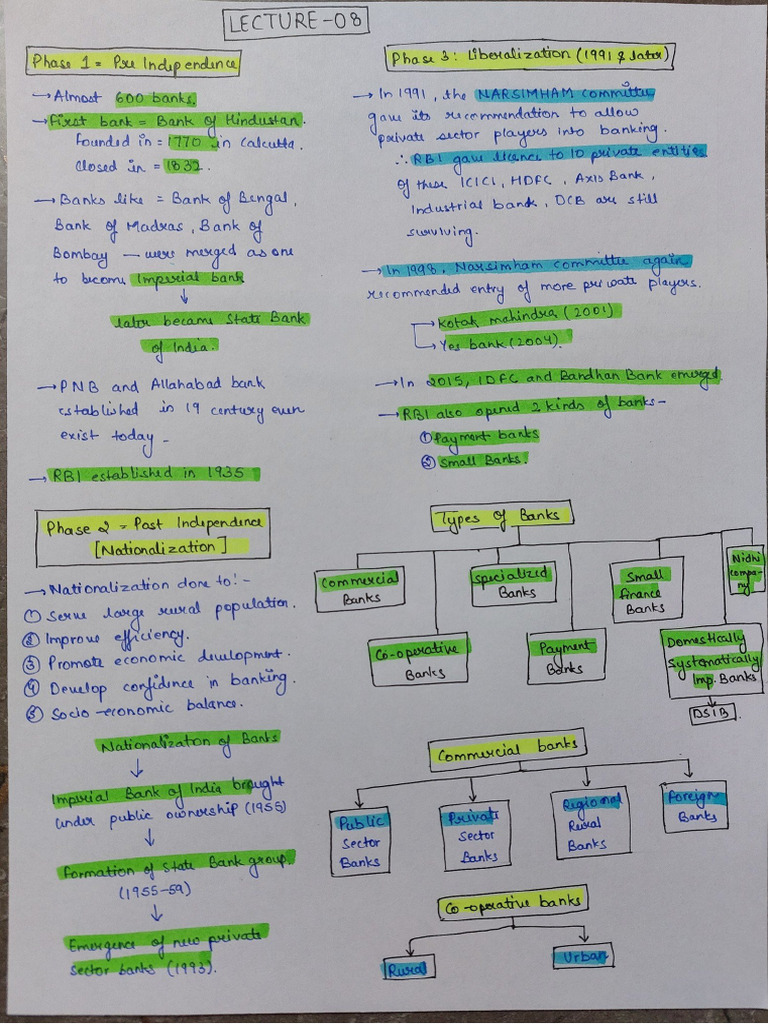 LECTURE-08
Phase 1 = Pre Independence
→ Almost 600 banks.
→ First bank = Bank of Hindustan.
founded in = 1770 in Calcutta.
closed in = 1832.
→ Banks like = Bank of Bengal,
Bank of Madras, Bank of
Bombay — were merged as one
to become Imperial bank
↓
later became State Bank
of India.
→ PNB and Allahabad bank
established in 19 century even
exist today -
→ RBI established in 1935
Phase 2 = Post Independence
[Nationalization]
→ Nationalization done to:-
① Serve large rural population.
② Improve efficiency.
③ Promote economic development.
④ Develop confidence in banking.
⑤ Socio-economic balance.
Nationalization of Banks
↓
Imperial Bank of India brought
under public ownership (1955)
↓
Formation of State Bank group.
(1955-59)
↓
Emergence of new private
sector banks (1993).
Phase 3: Liberalization (1991 & later)
→ In 1991, the NARSIMHAM committee
gave its recommendation to allow
private sector players into banking.
∴ RBI gave licence to 10 private entities
of these ICICI, HDFC, Axis Bank,
Industrial bank, DCB are still
surviving.
→ In 1998, Narsimham committee again
recommended entry of more private players.
→ Kotak mahindra (2001)
→ Yes bank (2004).
→ In 2015, IDFC and Bandhan Bank emerged
→ RBI also opened 2 kinds of banks -
① Payment banks
② Small Banks.
Types of Banks
Commercial
Banks
Specialized
Banks
Small
finance
Banks
Nidhi
compa-
ny
Co-operative
Banks
Payment
Banks
Domestically
Systematically
Imp. Banks
DSIB.
Commercial banks
Public
Sector
Banks
Private
Sector
Banks
Regional
Rural
Banks
Foreign
Banks
Co-operative banks
Rural
Urban